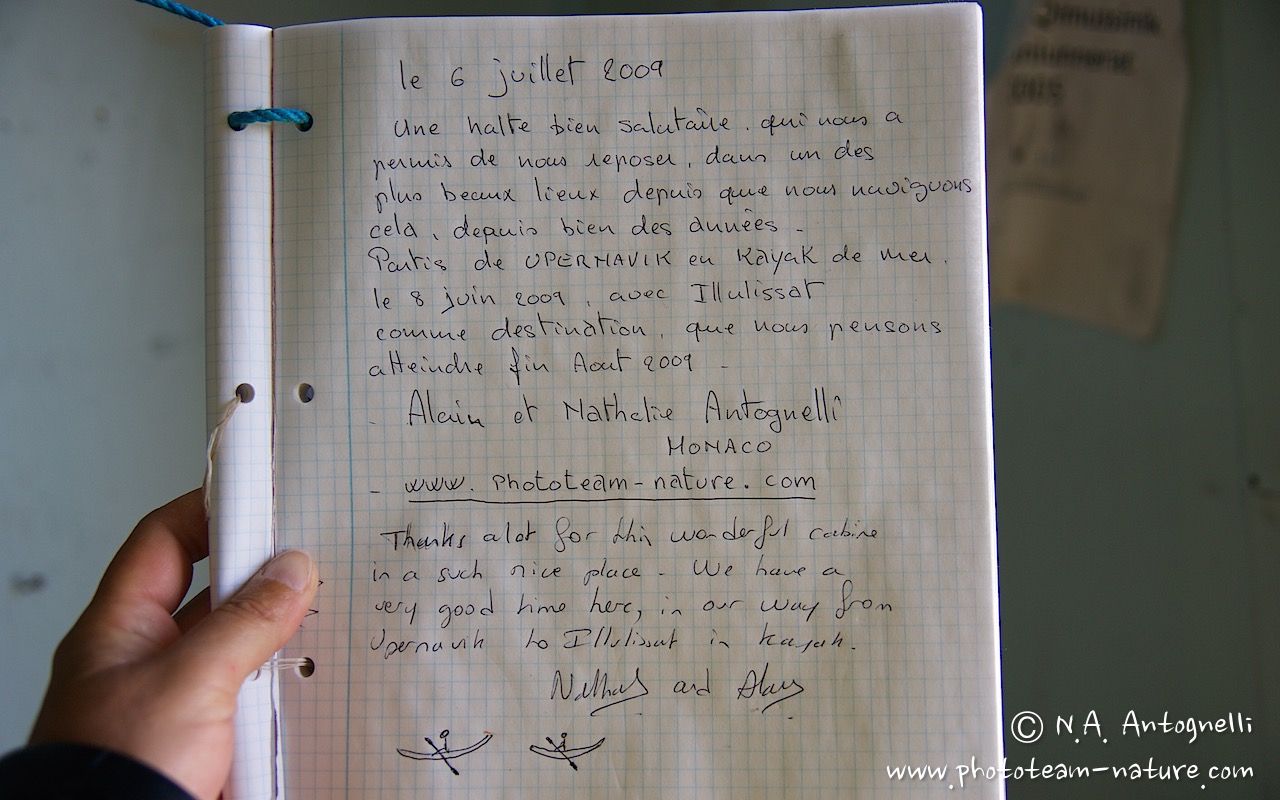 le 6 juillet 2009
Une halte bien salutaire. qui nous a
permis de nous reposer, dans un des
plus beaux lieux depuis que nous naviguons
cela, depuis bien des années -
Partis de UPERNAVIK en Kayak de mer.
le 8 juin 2009, avec Illulissat
comme destination, que nous pensons
atteindre fin Aout 2009 -
- Alain et Nathalie Antognelli
MONACO
- www.phototeam-nature.com
Thanks a lot for this wonderful cabine
in a such nice place - We have a
very good time here, in our way from
Upernavik to Illulissat in kayak.
and
© N.A. Antognelli
www.phototeam-nature.com